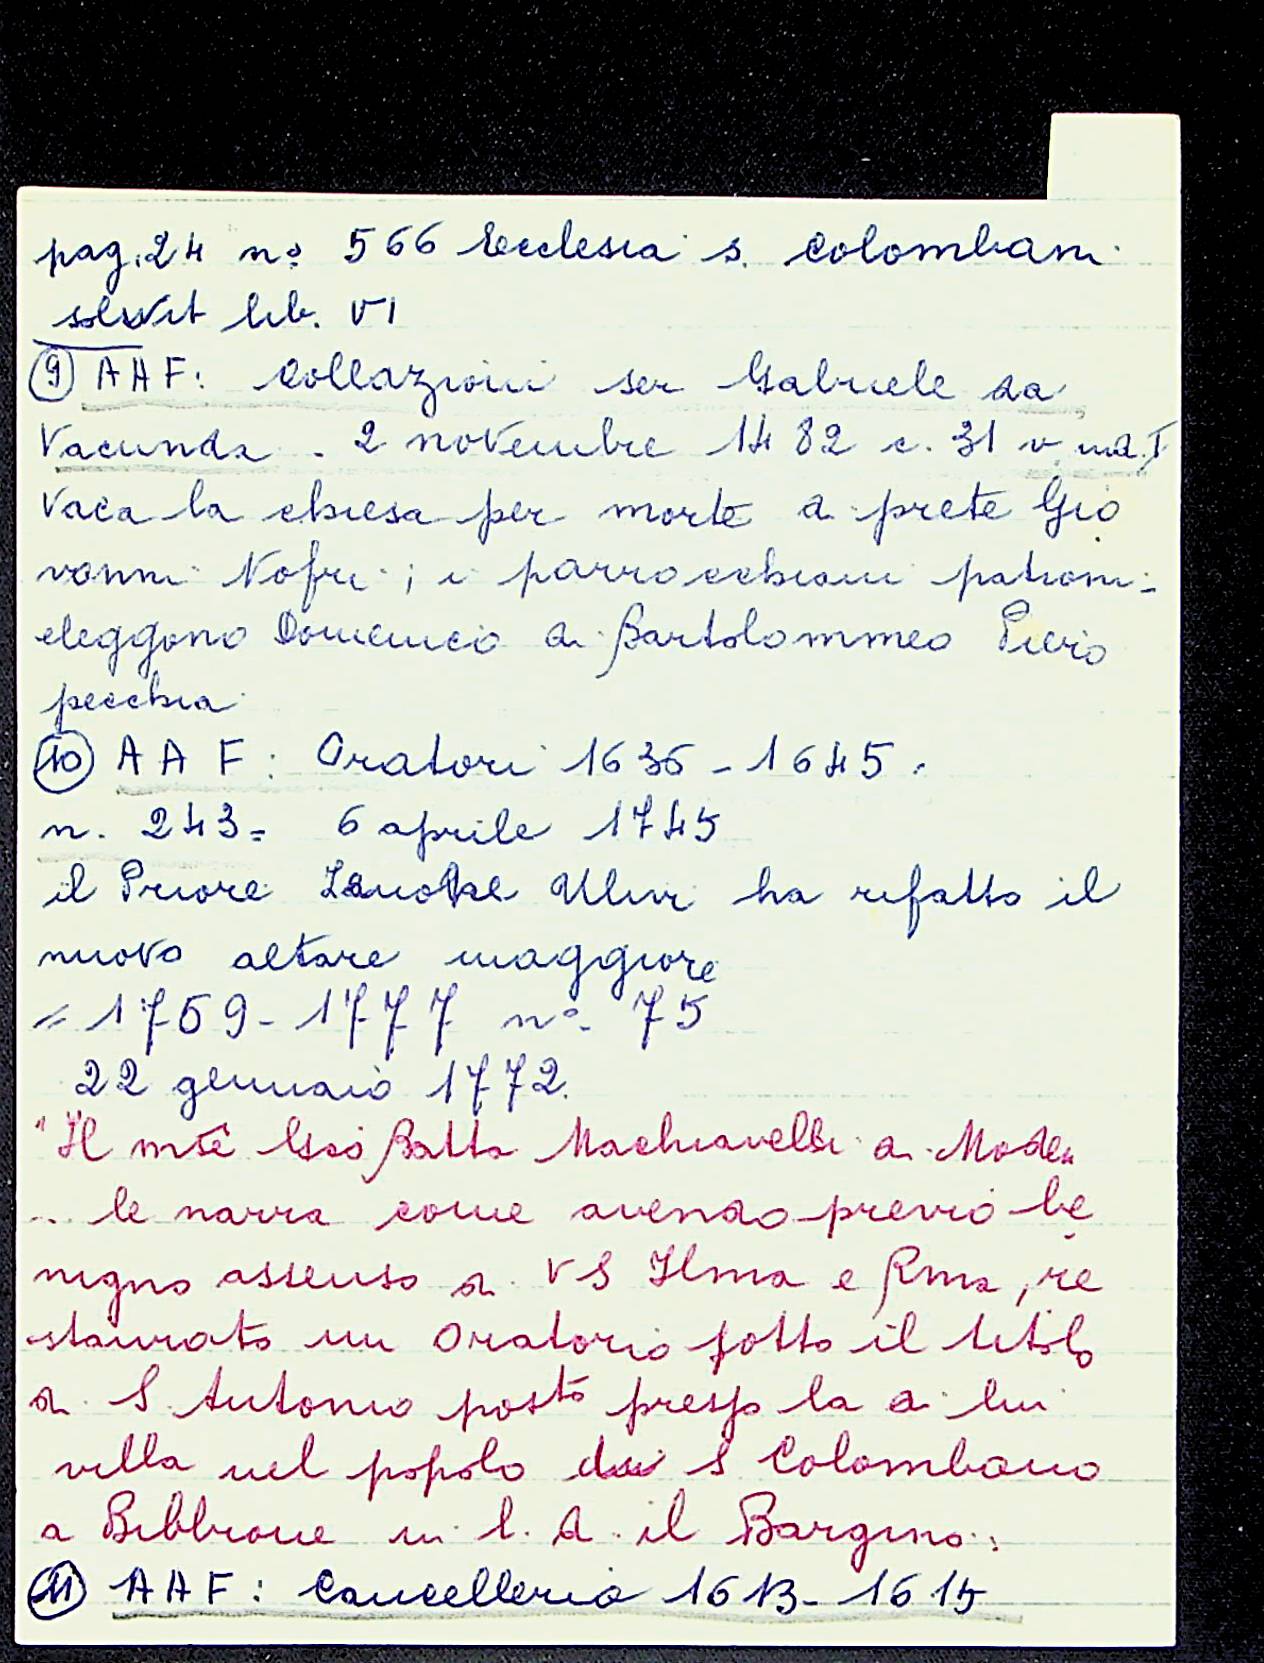 pag. 24 nº 566 Ecclesia s. Colombani
solvit lib. VI
⑨ AAF: Collazioni ser Gabriele da
Vacunda. 2 novembre 1482 c. 31 v. ind. I
Vaca la chiesa per morte di prete Gio
vanni Nofri; i parrocchiani patroni
eleggono Domenico di Bartolommeo Piero
pecchia
⑩ AAF: Oratori 1636-1645.
n. 243= 6 aprile 1745
il Priore Ulivi ha rifatto il
nuovo altare maggiore
= 1759-1777 nº 75
22 gennaio 1772.
"Il mte Gio Batta Machiavelli di Mode
... le narra come avendo previo be
nigno assenso di VS Ilma e Rma, re
staurato un Oratorio sotto il titolo
di S. Antonio posto presso la di lui
villa nel popolo di S Colombano
a Bibbione in l. d. il Bargino:
⑪ AAF: Cancelleria 1613-1615